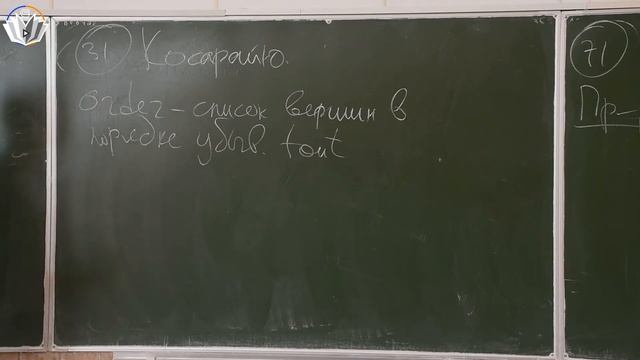 31 Косарайю.
order - список вершин в
порядке убыв. tout
71
Пр-